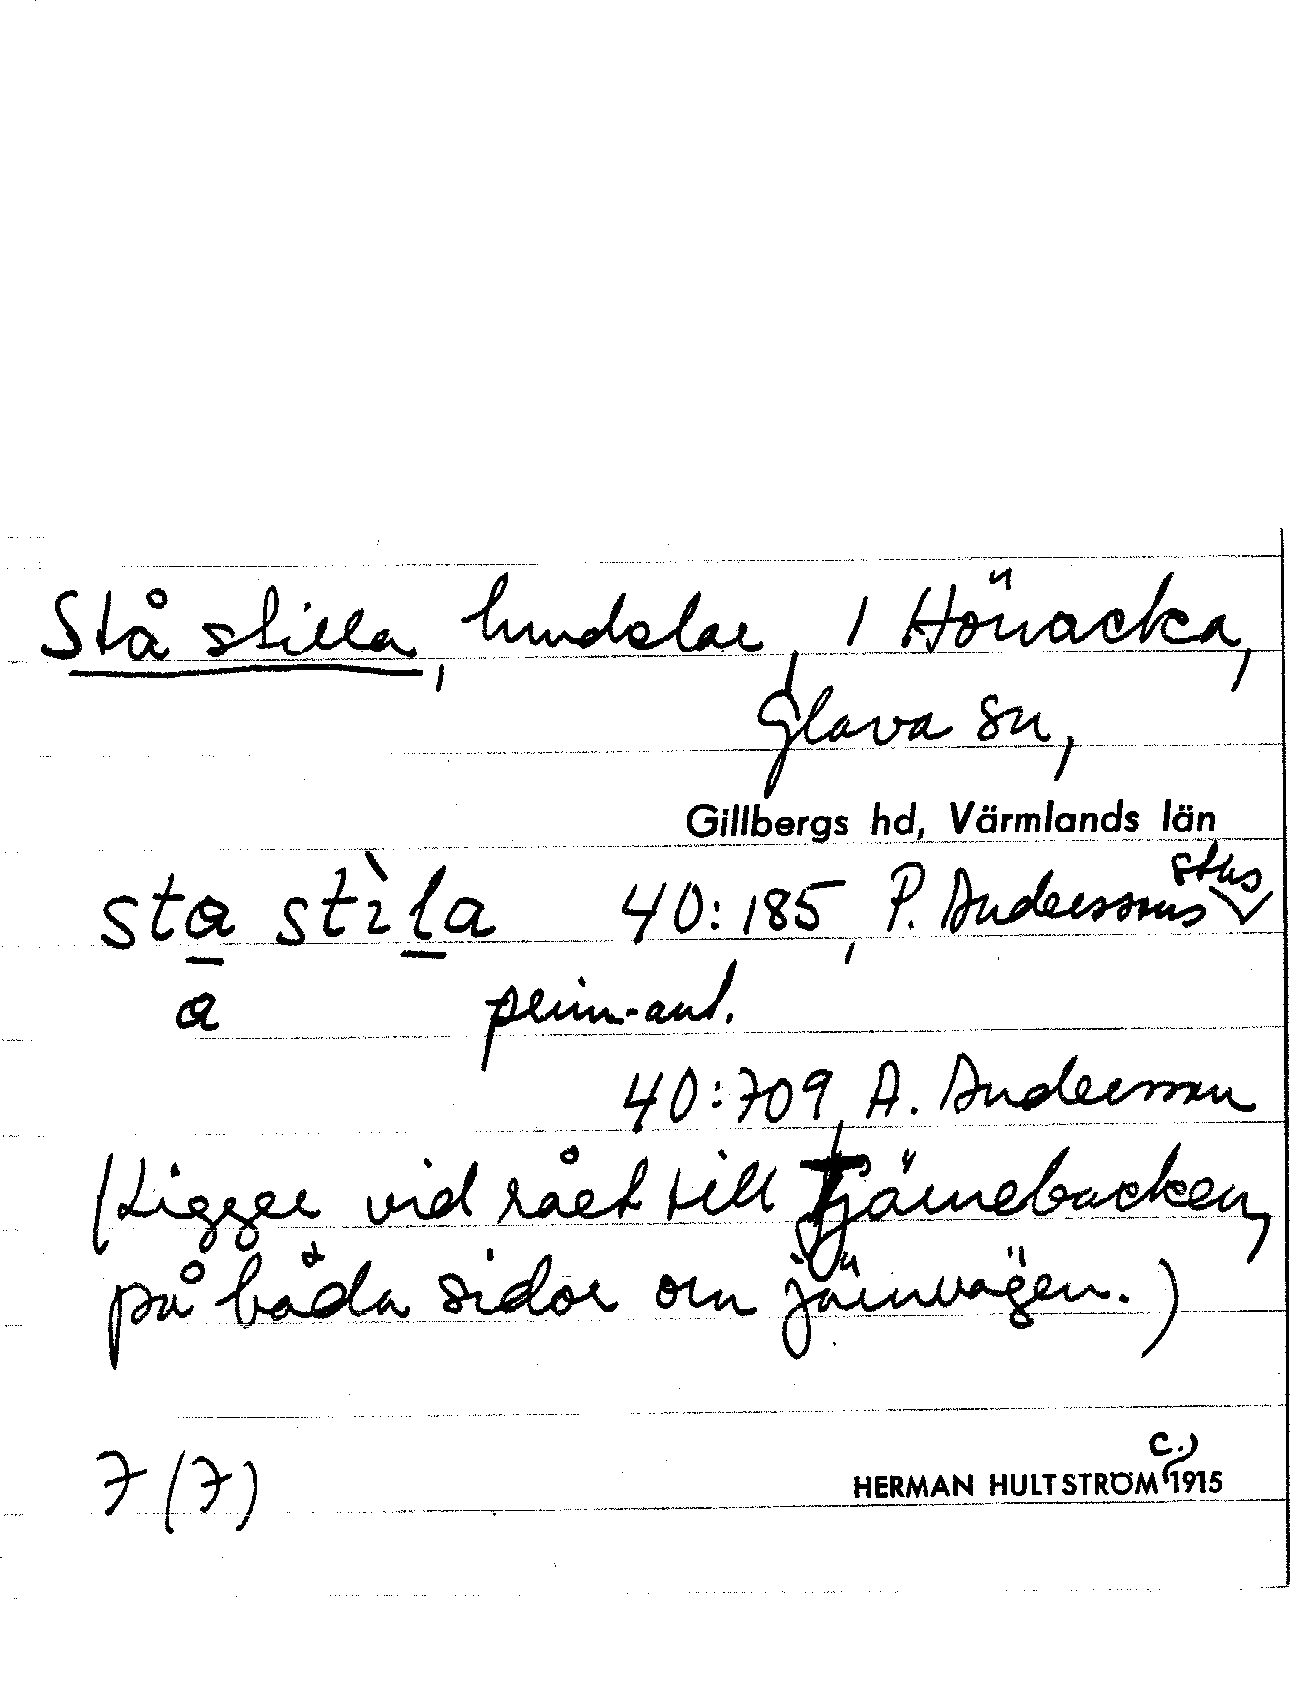 Stå stilla, hmdslar, / Hönacka,
Glava sn,
Gillbergs hd, Värmlands län
sta stìla 40:185, P. Anderssons stus
a penn-ant.
40:709, A. Andersson
(Ligger vid rået till Tjärnebacken,
på båda sidor om järnvägen.)
7 (7)
HERMAN HULTSTRÖM c.) 1915